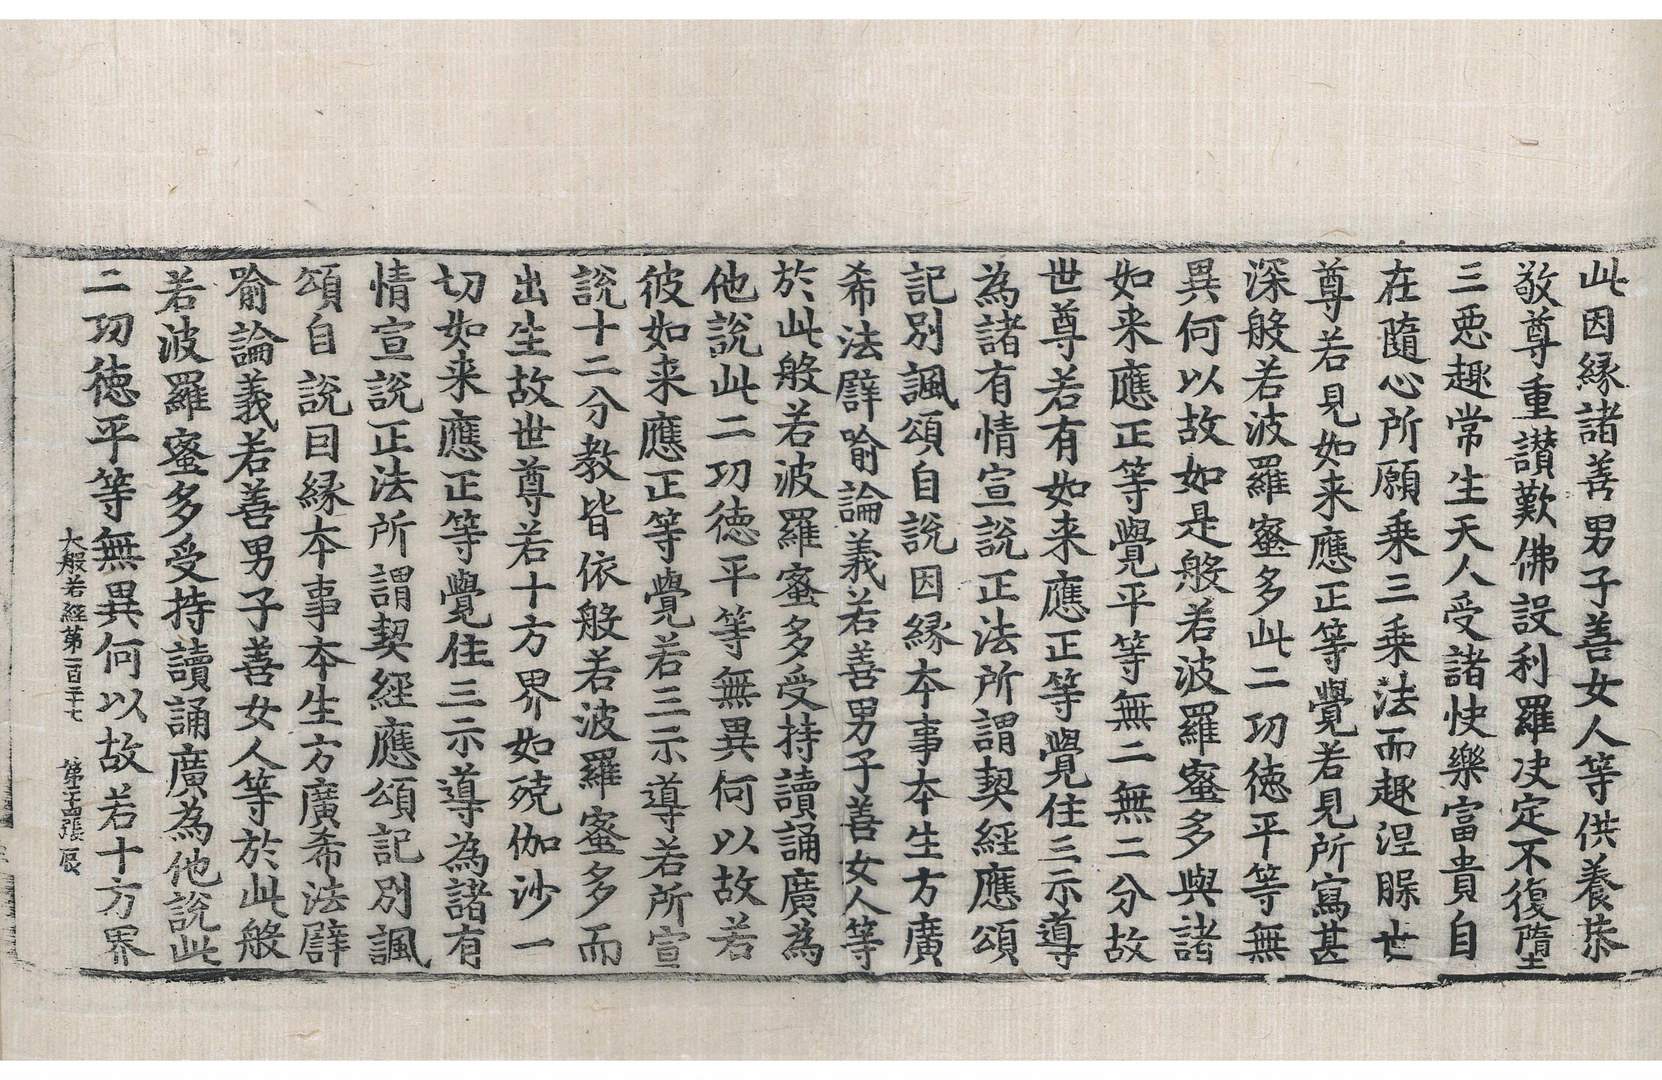 此因縁諸善男子善女人等供養恭
敬尊重讃歎佛設利羅决定不復墮
三惡趣常生天人受諸快樂富貴自
在隨心所願乘三乘法而趣涅腺世
尊若見如来應正等覺若見所寫甚
深般若波羅蜜多此二功徳平等無
異何以故如是般若波羅蜜多與諸
如来應正等覺平等無二無二分故
世尊若有如来應正等覺住三示導
為諸有情宣說正法所謂契經應頌
記別諷頌自說因縁夲事夲生方廣
希法譬喻論義若善男子善女人等
於此般若波羅蜜多受持讀誦廣為
他說此二功徳平等無異何以故若
彼如来應正等覺若三示導若所宣
說十二分教皆依般若波羅蜜多而
出生故世尊若十方界如殑伽沙一
切如来應正等覺住三示導為諸有
情宣說正法所謂契經應頌記別諷
頌自說因縁夲事夲生方廣希法譬
喻論義若善男子善女人等於此般
若波羅蜜多受持讀誦廣為他說此
二功徳平等無異何以故若十方界
大般若經第一百二十七 第二十四張 辰